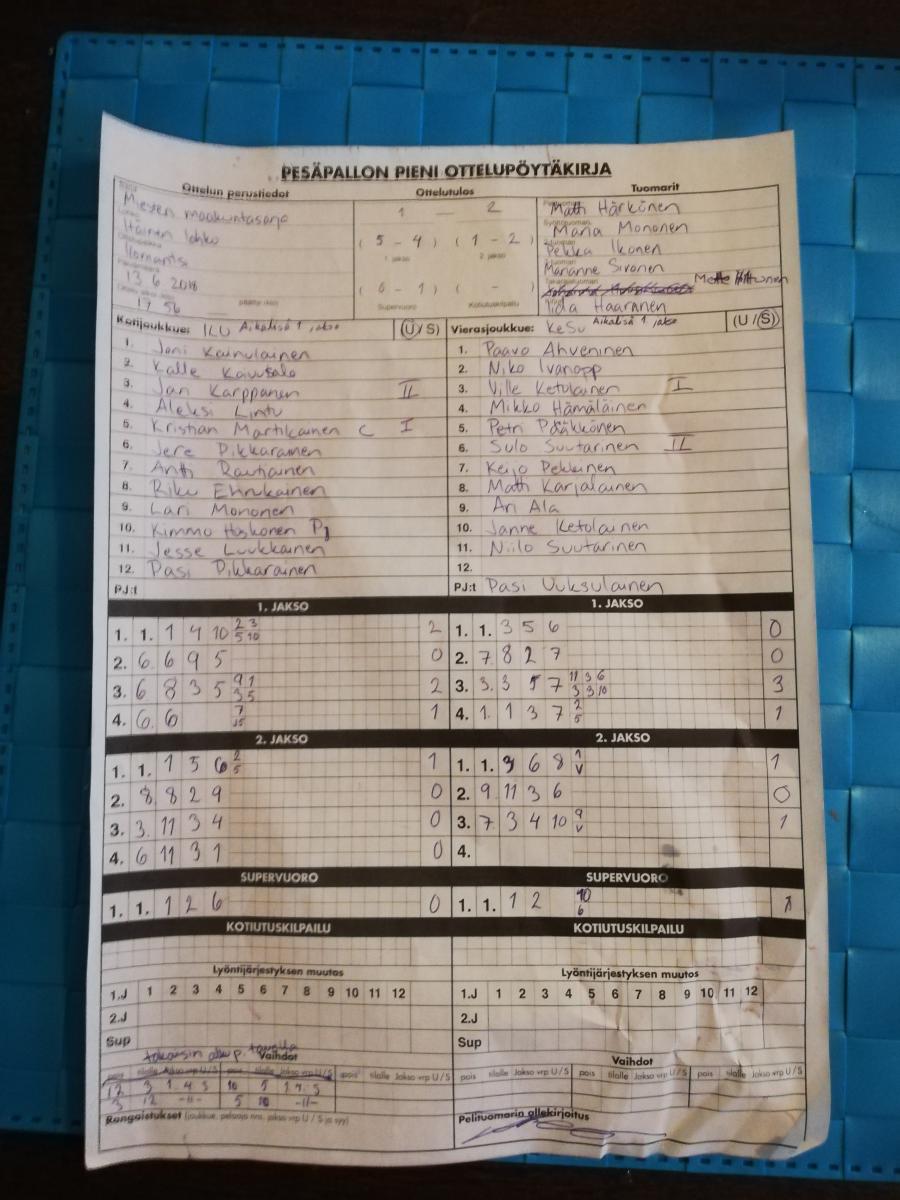 PESÄPALLON PIENI OTTELUPÖYTÄKIRJA
Ottelun perustiedot Ottelutulos Tuomarit
Miesten maakuntasarja
Itäinen lohko
Ilomantsi
13.6 2018
17 56
1 — 2
( 5 - 4 ) ( 1 - 2 )
1. jakso 2. jakso
( 0 - 1 ) ( - )
Supervuoro Kotiutuskilpailu
Matti Härkönen
Maria Mononen
Pekka Ikonen
Marianne Sivonen
Iida Haaranen
Kotijoukkue: ILU Aikalisä 1 jakso (U/S)
1. Joni Kainulainen
2. Kalle
3. Jan Karppanen II
4. Aleksi Lintu
5. Kristian Martikainen C I
6. Jere Pikkarainen
7. Antti Rautiainen
8. Riku
9. Lari Mononen
10. Kimmo Hoskonen
11. Jesse Luukkainen
12. Pasi Pikkarainen
PJ:t
Vierasjoukkue: KeSu Aikalisä 1 jakso (U/S)
1. Paavo Ahveninen
2. Niko Ivanopp
3. Ville Ketolainen I
4. Mikko Hämäläinen
5. Petri Pääkkönen
6. Sulo Suutarinen II
7. Keijo Pekkinen
8. Matti Karjalainen
9. Ari Ala
10. Janne Ketolainen
11. Niilo Suutarinen
12.
PJ:t Pasi Vuksulainen
1. JAKSO 1. JAKSO
1. 1. 1 4 10 2 3 2
5 10
2. 6. 6 9 5 0
3. 6 8 3 5 9 1 2
3 5
4. 6. 6 7 1
1. 1. 3 5 6 0
2. 7. 8 2 7 0
3. 3. 3 5 7 11 3 6 3
3 3 10
4. 1. 1 3 7 2 1
5
2. JAKSO 2. JAKSO
1. 1. 1 5 6 2 1
5
2. 8. 8 2 9 0
3. 3. 11 3 4 0
4. 6 11 3 1 0
1. 1. 3 6 8 1 1
V
2. 9 11 3 6 0
3. 7. 3 4 10 9 1
V
4.
SUPERVUORO SUPERVUORO
1. 1. 1 2 6 0
1. 1. 1 2 10 1
6
KOTIUTUSKILPAILU KOTIUTUSKILPAILU
Lyöntijärjestyksen muutos Lyöntijärjestyksen muutos
1.J 1 2 3 4 5 6 7 8 9 10 11 12
2.J
Sup
1.J 1 2 3 4 5 6 7 8 9 10 11 12
2.J
Sup
takaisin
Vaihdot Vaihdot
pois tilalle Jakso vrp U / S pois tilalle Jakso vrp U / S pois tilalle Jakso vrp U / S
pois tilalle Jakso vrp U / S pois tilalle Jakso vrp U / S pois tilalle Jakso vrp U / S
12 3 1. 4 S 10 5 1 4. S
3 12 -11- 5 10 -11-
Rangaistukset (joukkue, pelaaja nro, jakso vrp U / S ja syy)
Pelituomarin allekirjoitus